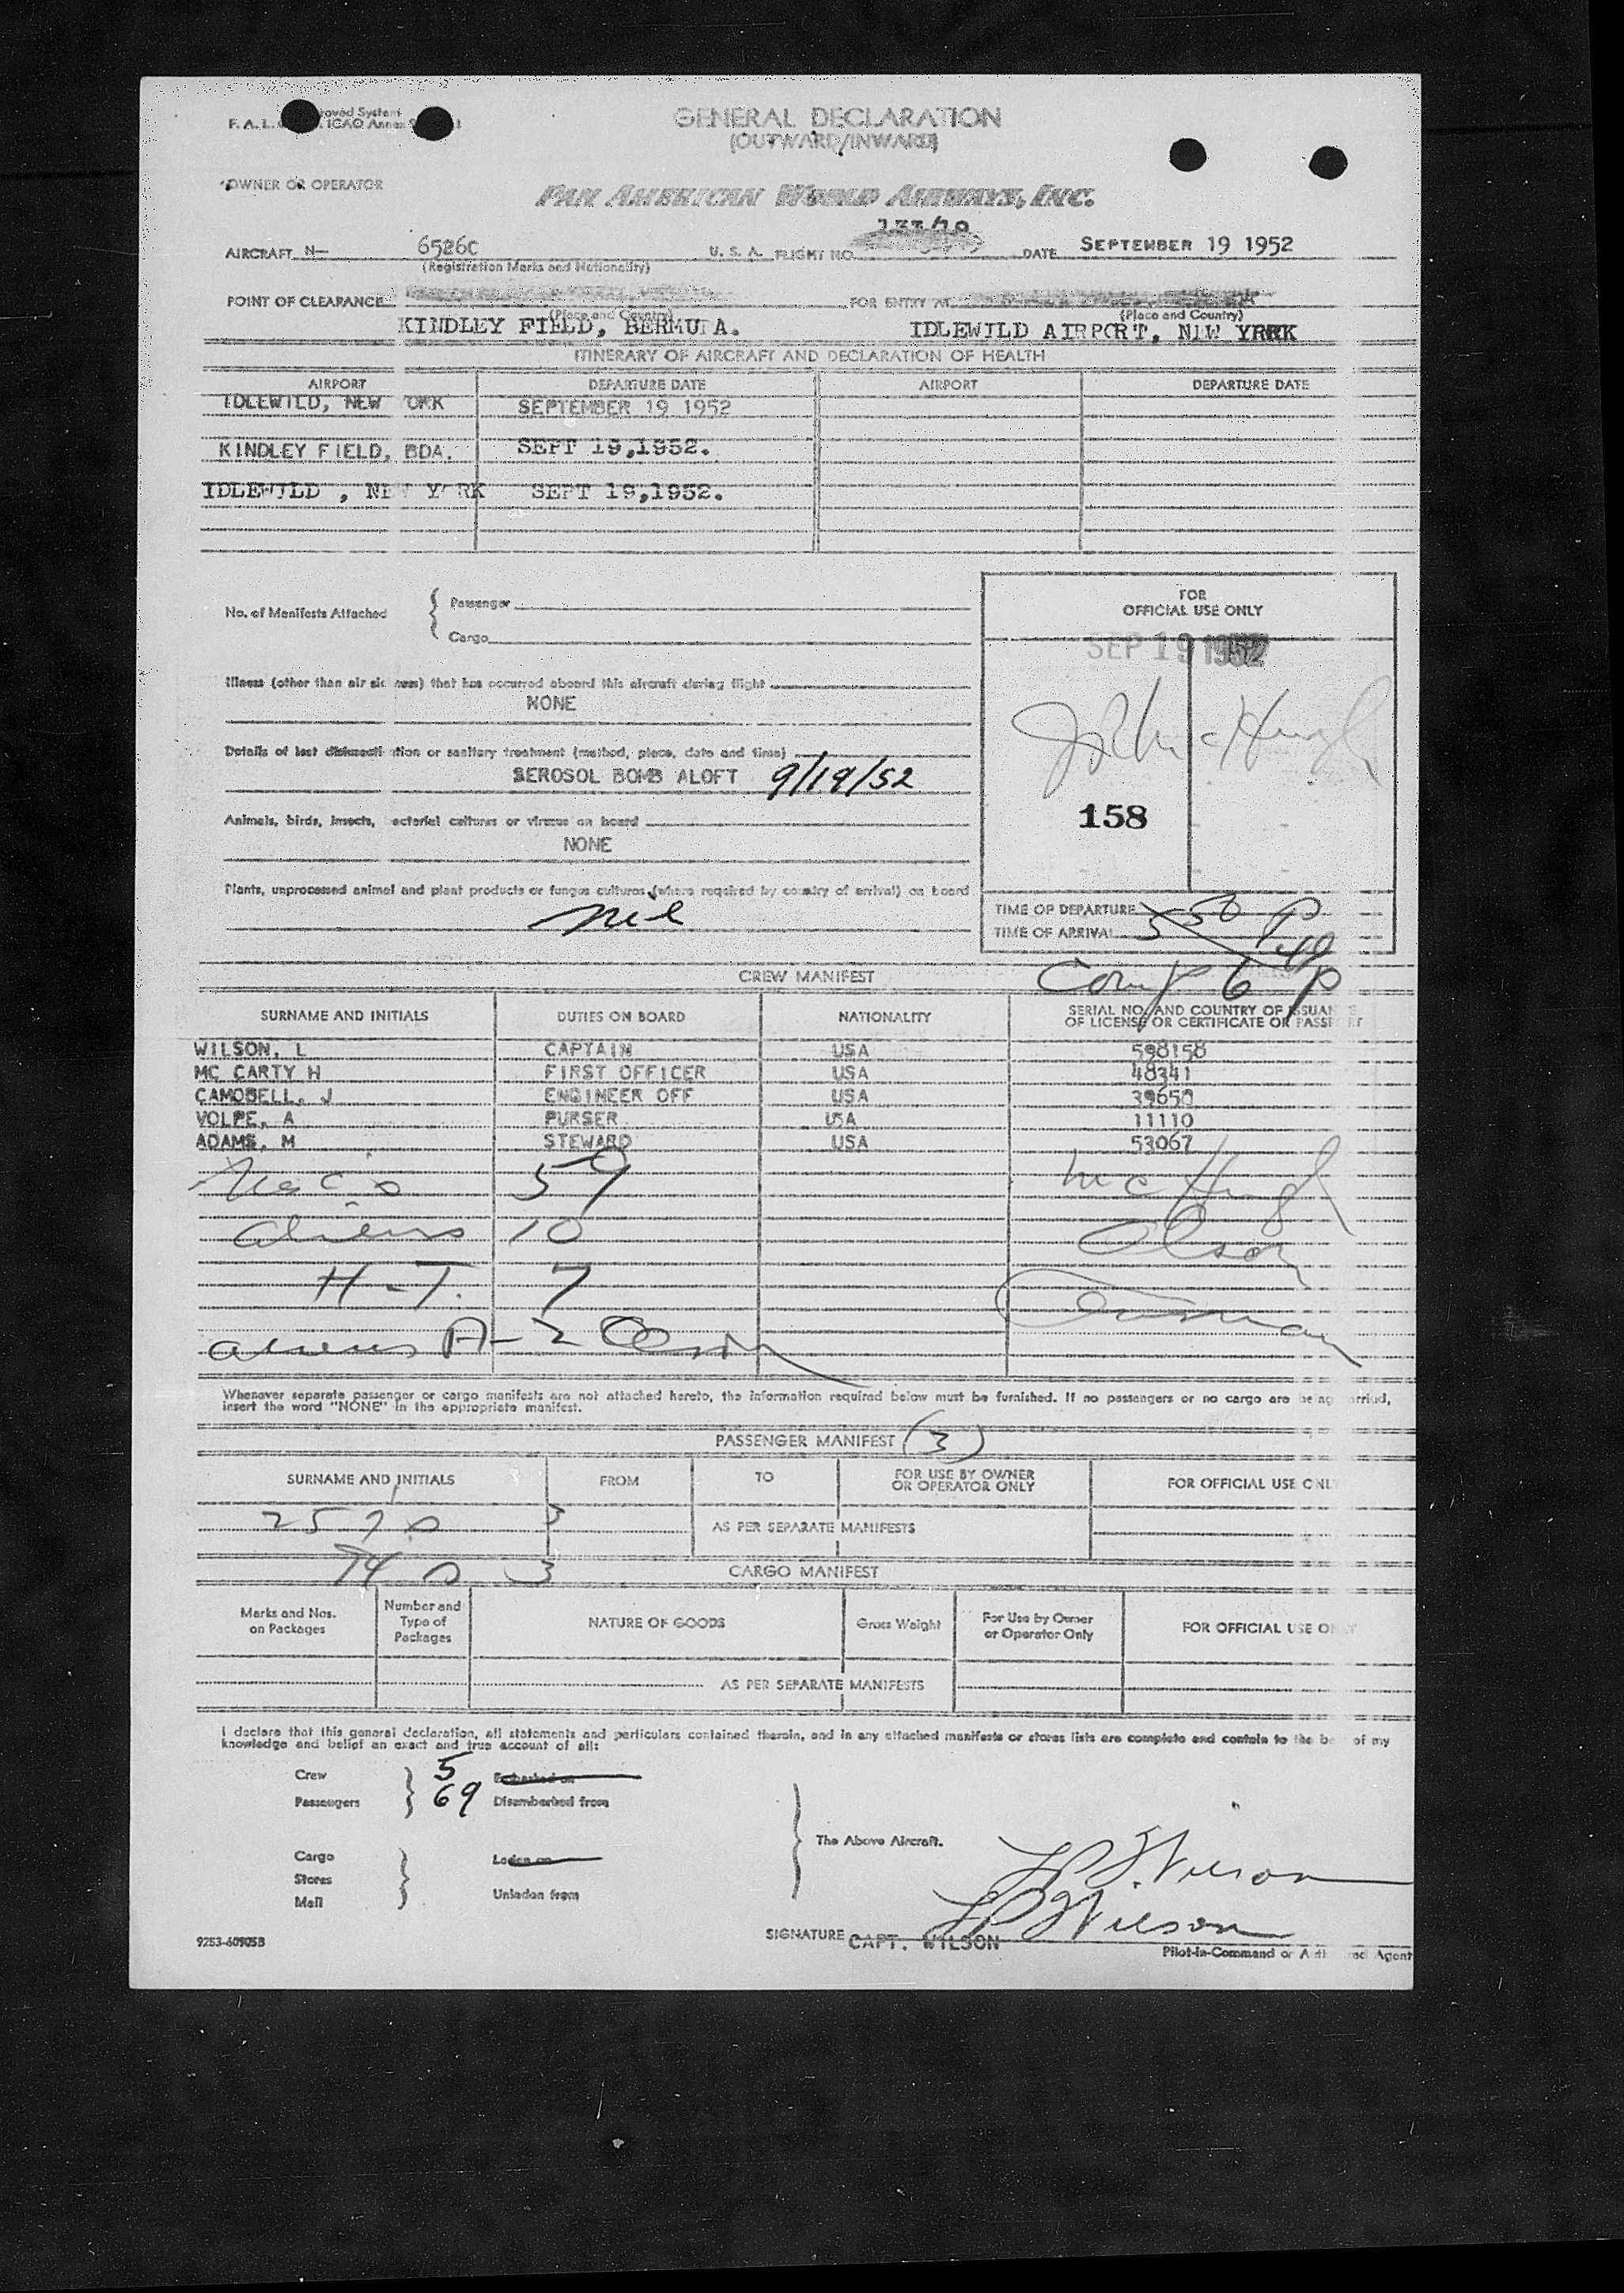 GENERAL DECLARATION
(OUTWARD/INWARD)
OWNER OR OPERATOR
PAN AMERICAN WORLD AIRWAYS, INC.
AIRCRAFT N- 6526C U. S. A. FLIGHT NO. DATE SEPTEMBER 19 1952
(Registration Marks and Nationality)
POINT OF CLEARANCE FOR ENTRY AT
(Place and Country) (Place and Country)
KINDLEY FIELD, BERMUDA. IDLEWILD AIRPORT, NEW YORK
ITINERARY OF AIRCRAFT AND DECLARATION OF HEALTH
AIRPORT DEPARTURE DATE AIRPORT DEPARTURE DATE
IDLEWILD, NEW YORK SEPTEMBER 19 1952
KINDLEY FIELD, BDA. SEPT 19,1952.
IDLEWILD , NEW YORK SEPT 19,1952.
No. of Manifests Attached { Passenger
Cargo
FOR
OFFICIAL USE ONLY
SEP 19 1952
158
Illness (other than air sickness) that has occurred aboard this aircraft during flight
NONE
Details of last disinsectization or sanitary treatment (method, place, date and time)
SEROSOL BOMB ALOFT 9/19/52
Animals, birds, insects, bacterial cultures or viruses on board
NONE
Plants, unprocessed animal and plant products or fungus cultures (where required by country of arrival) on board
nil
TIME OF DEPARTURE
TIME OF ARRIVAL
CREW MANIFEST
SURNAME AND INITIALS DUTIES ON BOARD NATIONALITY SERIAL NO. AND COUNTRY OF ISSUANCE
OF LICENSE OR CERTIFICATE OR PASSPORT
WILSON, L CAPTAIN USA 598158
MC CARTY H FIRST OFFICER USA 48341
CAMOBELL, J ENGINEER OFF USA 39650
VOLPE, A PURSER USA 11110
ADAMS, M STEWARD USA 53067
59 McHugh
aliens 10 Olson
H-T. 7
aliens A-2 Olson
Whenever separate passenger or cargo manifests are not attached hereto, the information required below must be furnished. If no passengers or no cargo are being carried,
insert the word "NONE" in the appropriate manifest.
PASSENGER MANIFEST (3)
SURNAME AND INITIALS FROM TO FOR USE BY OWNER
OR OPERATOR ONLY FOR OFFICIAL USE ONLY
257 s 3 AS PER SEPARATE MANIFESTS
3
CARGO MANIFEST
Marks and Nos.
on Packages Number and
Type of
Packages NATURE OF GOODS Gross Weight For Use by Owner
or Operator Only FOR OFFICIAL USE ONLY
AS PER SEPARATE MANIFESTS
I declare that this general declaration, all statements and particulars contained therein, and in any attached manifests or stores lists are complete and contain to the best of my
knowledge and belief an exact and true account of all:
Crew 5 Embarked on
Passengers 69 Disembarked from
The Above Aircraft.
Cargo Laden on
Stores
Mail Unladen from
LP Wilson
LP Wilson
SIGNATURE CAPT. WILSON
Pilot-in-Command or Authorized Agent
9253-60905B